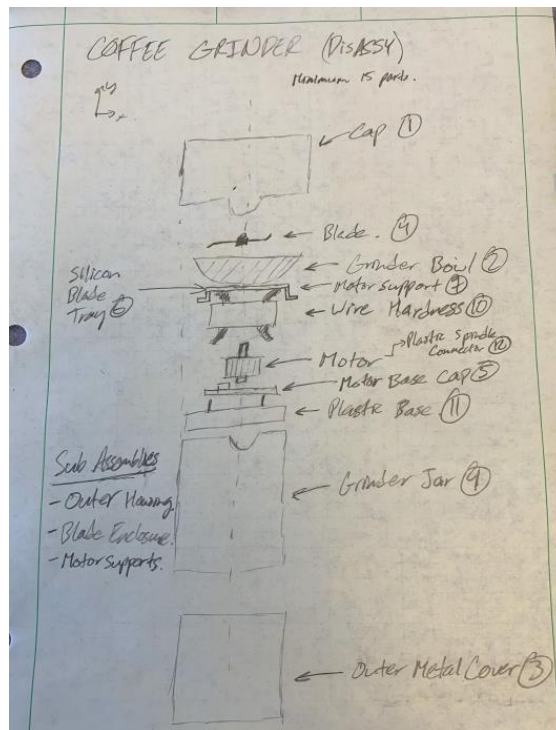 COFFEE GRINDER (DISASSY)
Minimum 15 parts.
y
x
Cap 1
Blade. 4
Grinder Bowl 2
Silicon
Blade
Tray 6
Motor support 7
Wire Hardness 10
Plastic Spindle
Connector 12
Motor
Motor Base Cap 5
Plastic Base 11
Sub Assemblies
- Outer Housing.
- Blade Enclosure.
- Motor Supports.
Grinder Jar 9
Outer Metal Cover 3